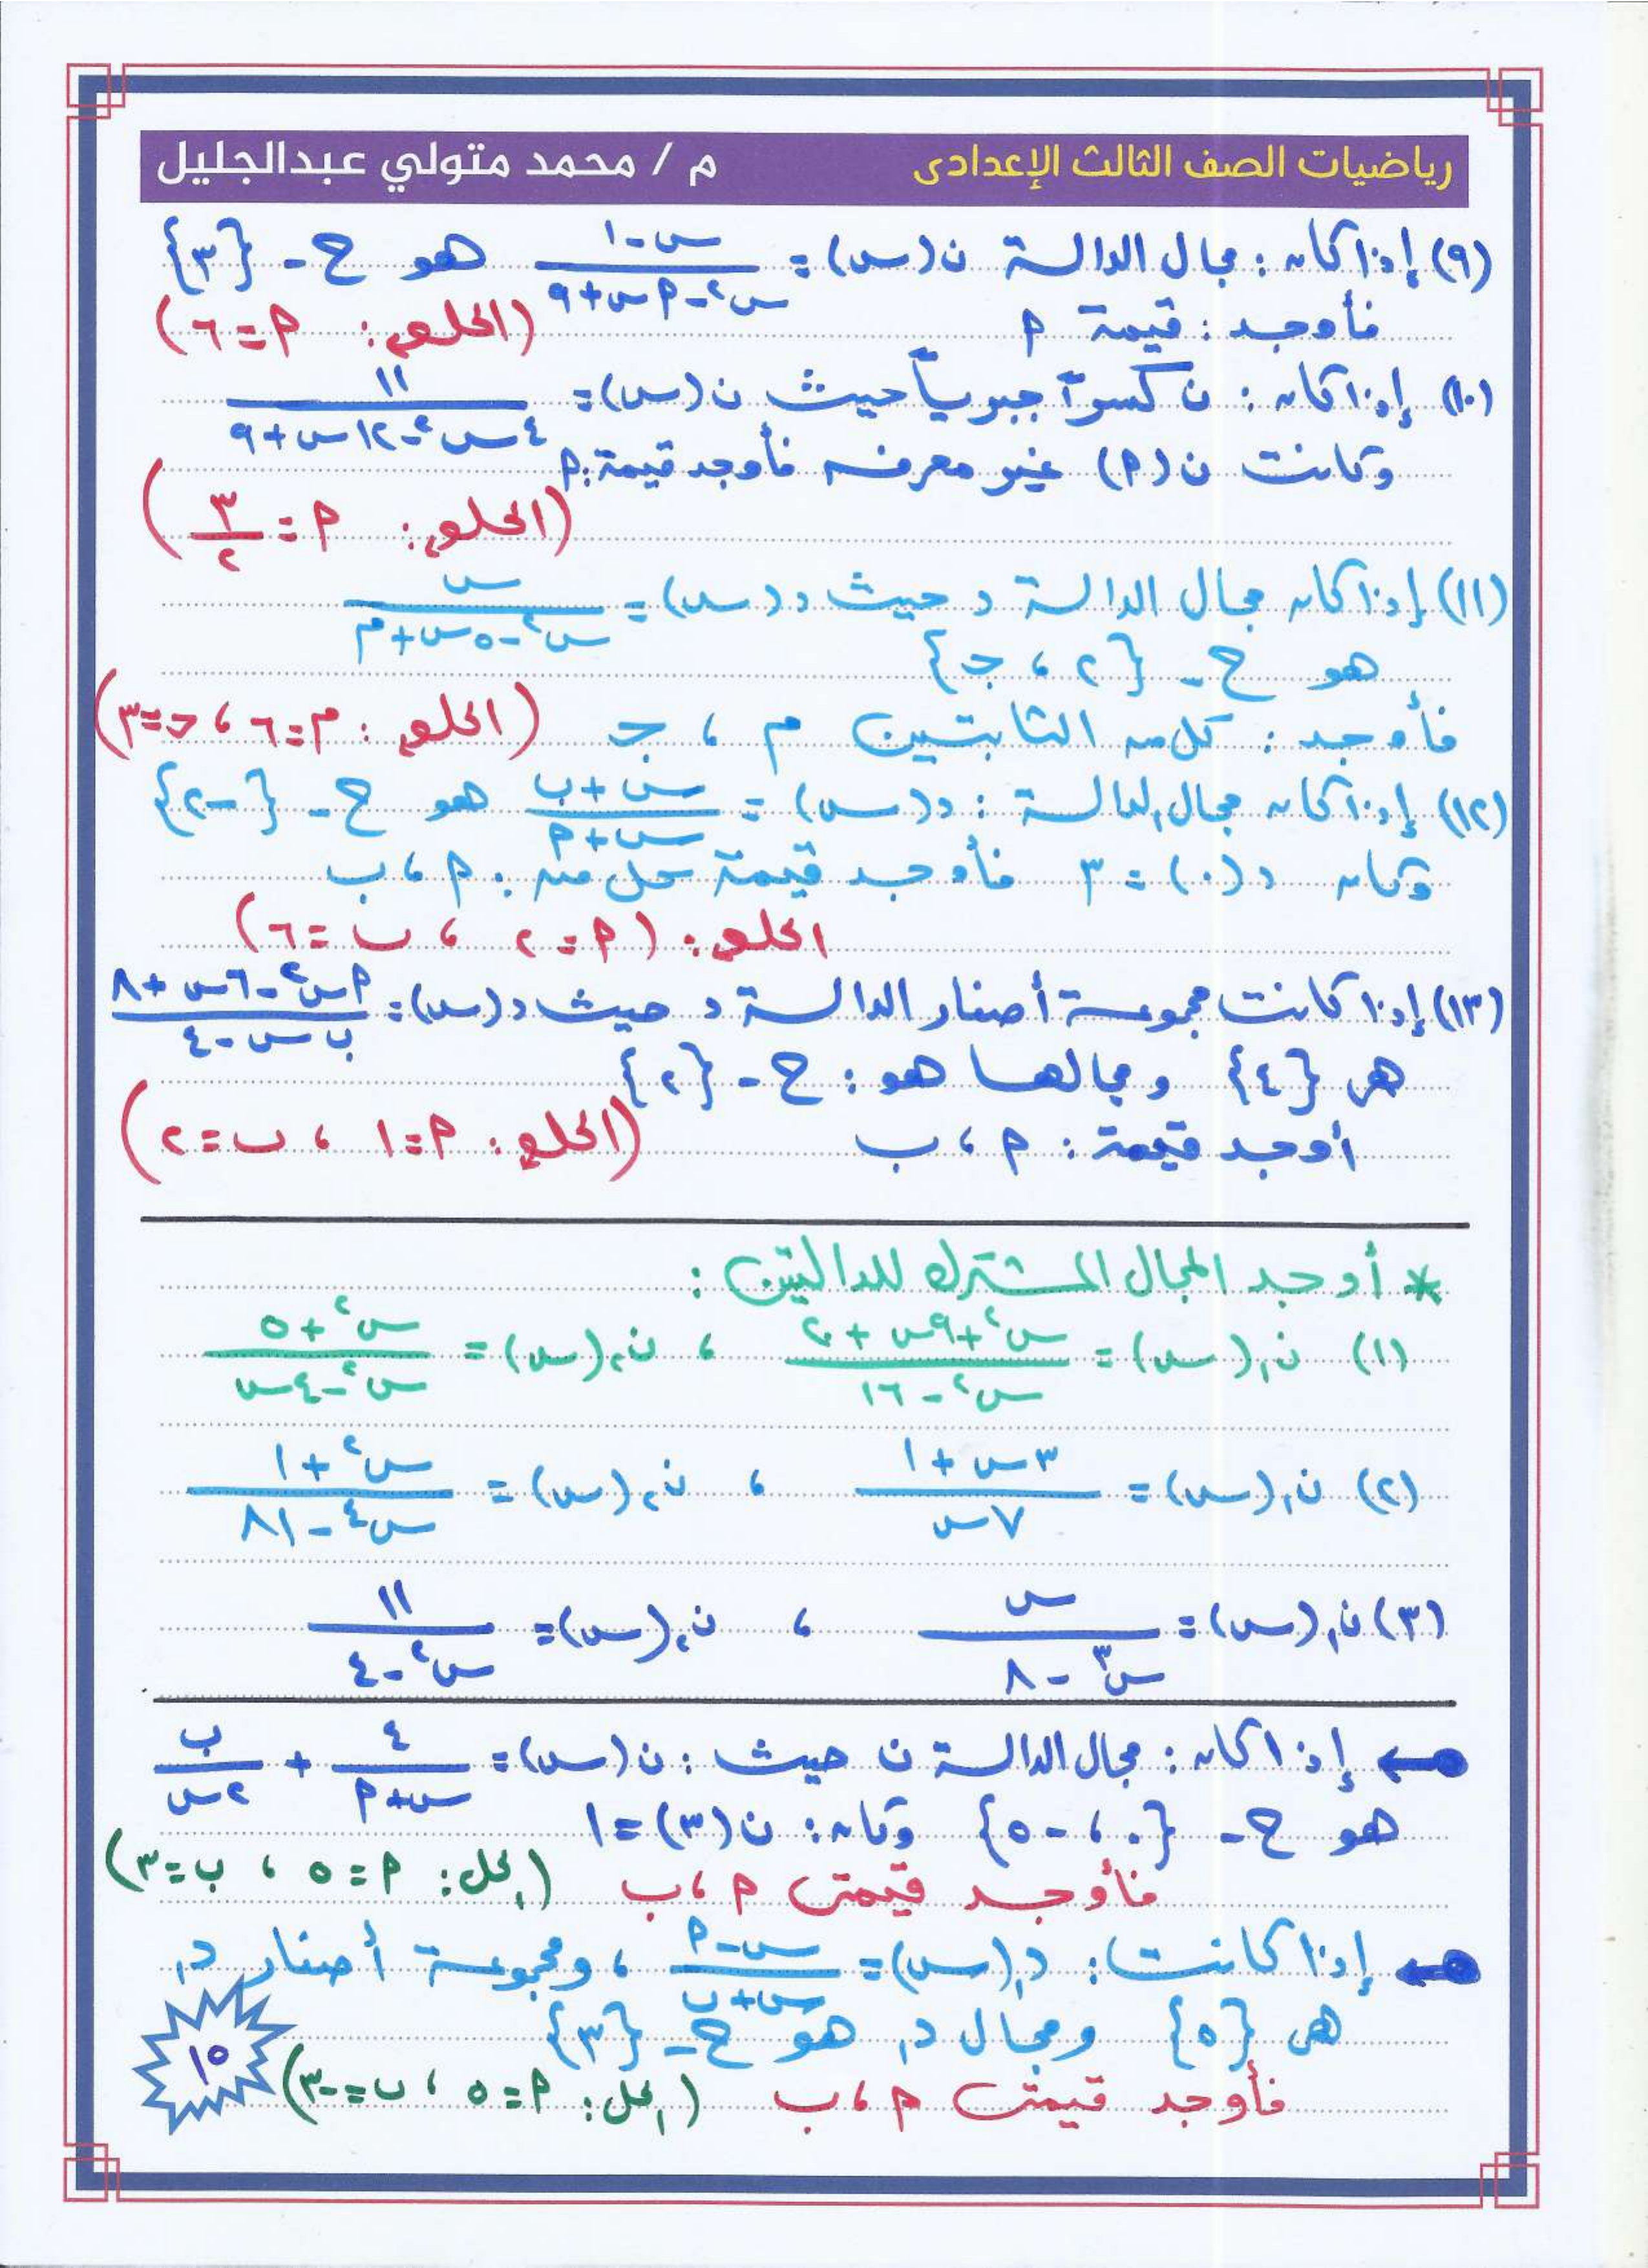 رياضيات الصف الثالث الإعدادى م / محمد متولي عبدالجليل
(٩) إذا كان : مجال الدالة ن(س) = (س - ١)/(س² - م س + ٩) هو ح - {٣}
فأوجد : قيمة م (الحل : م = ٦)
(١٠) إذا كان : ن كسراً جبرياً حيث ن(س) = ١١/(٤س² - ١٢س + ٩)
وكانت ن(م) غير معرفه فأوجد قيمة : م
(الحل : م = ٣/٢)
(١١) إذا كان مجال الدالة د حيث د(س) = س/(س² - ٥س + م)
هو ح - {٢ ، جـ}
فأوجد : كل من الثابتين م ، جـ (الحل : م = ٦ ، جـ = ٣)
(١٢) إذا كان مجال الدالة : د(س) = (س + ب)/(س + م) هو ح - {-٢}
وكان د(٠) = ٣ فأوجد قيمة كل من : م ، ب
الحل : (م = ٢ ، ب = ٦)
(١٣) إذا كانت مجموعة أصفار الدالة د حيث د(س) = (م س² - ٦س + ٨)/(ب س - ٤)
هى {٤} ومجالها هو : ح - {٢}
أوجد قيمة : م ، ب (الحل : م = ١ ، ب = ٢)
* أوجد المجال المشترك للدالتين :
(١) ن₁(س) = (س² + ٩س + ٢٠)/(س² - ١٦) ، ن₂(س) = (س² + ٥)/(س² - ٤س)
(٢) ن₁(س) = (٣س + ١)/٧س ، ن₂(س) = (س² + ١)/(س⁴ - ٨١)
(٣) ن₁(س) = س/(س³ - ٨) ، ن₂(س) = ١١/(س² - ٤)
← إذا كان : مجال الدالة ن حيث : ن(س) = ٤/(س + م) + ب/٢س
هو ح - {٠ ، -٥} وكان : ن(٣) = ١
فأوجد قيمتى م ، ب (الحل : م = ٥ ، ب = ٣)
← إذا كانت : د₁(س) = (س - م)/(س + ب) ، ومجموعة أصفار د₁
هى {٥} ومجال د₁ هو ح - {٣}
فأوجد قيمتى م ، ب (الحل : م = ٥ ، ب = -٣)
١٥